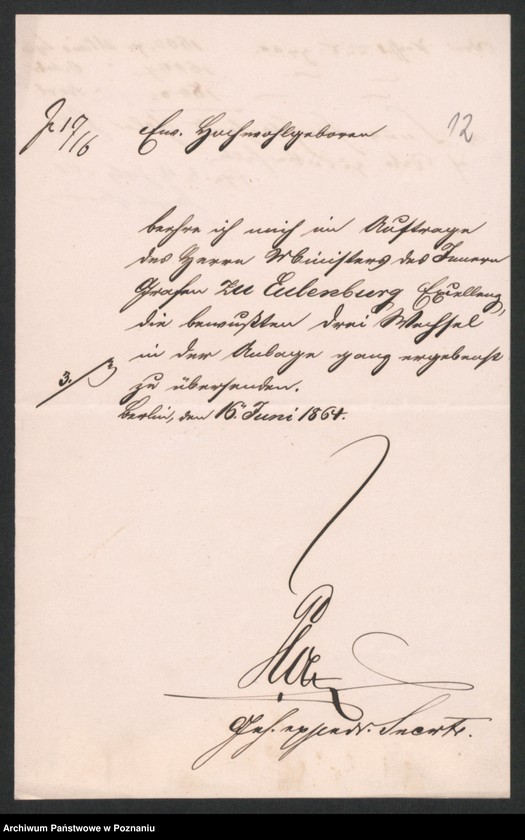 17/6
12
Euer Hochwohlgeboren
beehre ich mich im Auftrage
des Herrn Ministers des Innern
Grafen zu Eulenburg Excellenz,
die bewußten drei Wechsel
in der Anlage ganz ergebenst
3.
zu übersenden.
Berlin, den 16. Juni 1864.
Geh. exped. Secretr.
Archiwum Państwowe w Poznaniu